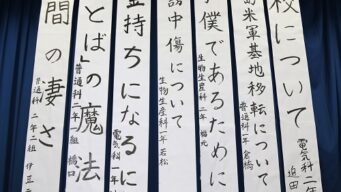 校について
電気科二年 迫田
島米軍基地移転について
普通科一年 倉橋
僕であるために
生物生産科二年 福元
謗中傷について
生物生産科一年 若松
金持ちになるに
電気科一年
とば」の魔法
普通科二年 橋口
間の凄さ
普通科二年二組 伊豆元